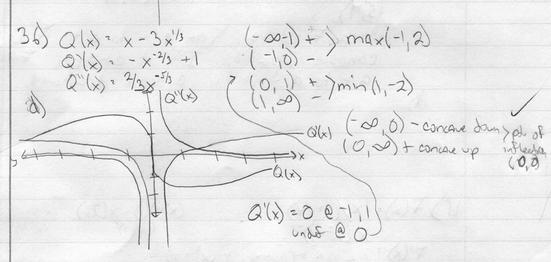 36) Q(x) = x - 3x^1/3
Q'(x) = -x^-2/3 + 1
Q''(x) = 2/3x^-5/3
(-∞,-1) + > max(-1,2)
(-1,0) -
(0,1) + > min(1,-2)
(1,∞) -
a)
Q''(x)
Q'(x)
Q(x)
x
(-∞,0) - concave down > pt of
(0,∞) + concave up inflection
(0,0)
Q'(x) = 0 @ -1,1
undef @ 0